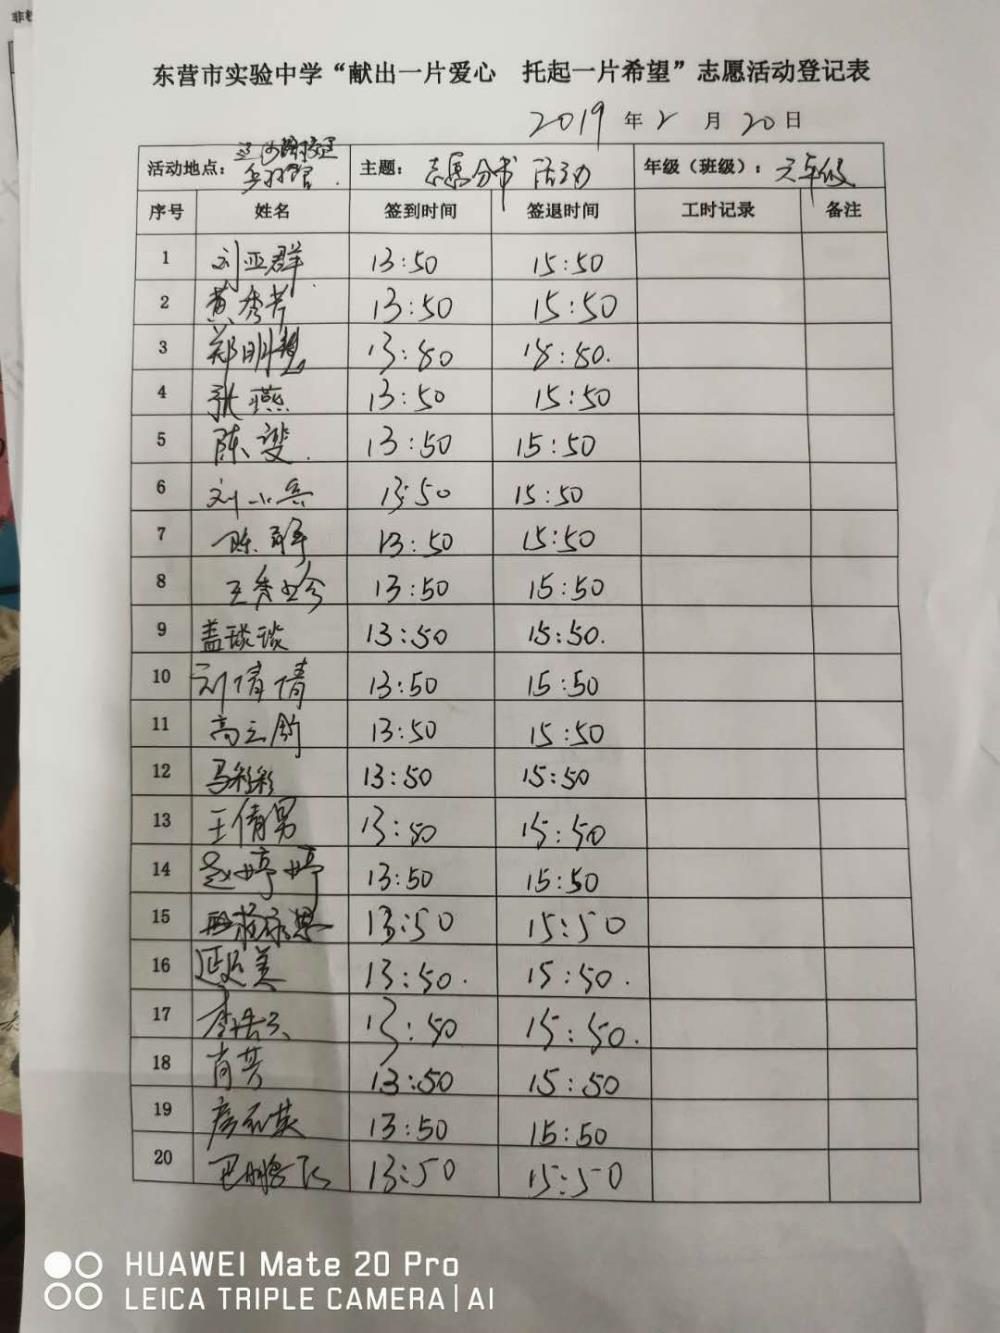 东营市实验中学“献出一片爱心 托起一片希望”志愿活动登记表
2019年2月20日
活动地点： 主题：志愿分书活动 年级（班级）：六年级
序号 姓名 签到时间 签退时间 工时记录 备注
1 刘亚群 13:50 15:50
2 黄秀芳 13:50 15:50
3 郑明慧 13:50 15:50.
4 张燕 13:50 15:50
5 陈雯. 13:50 15:50
6 刘小兵 13:50 15:50
7 陈 13:50 15:50
8 王秀珍 13:50 15:50
9 盖琰琰 13:50 15:50.
10 刘倩倩 13:50 15:50
11 高云 13:50 15:50
12 马彩彩 13:50 15:50
13 王倩男 13:50 15:50
14 赵婷婷 13:50 15:50
15 13:50 15:50
16 美 13:50. 15:50.
17 李 13:50 15:50.
18 肖芳 13:50 15:50
19 英 13:50 15:50
20 13:50 15:50
HUAWEI Mate 20 Pro
LEICA TRIPLE CAMERA | AI